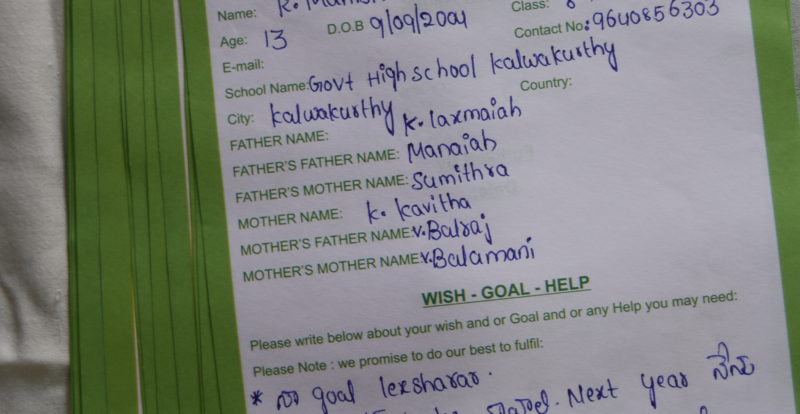 Name: K.
Class:
Age: 13 D.O.B 9/09/2004
Contact No: 9640856303
E-mail:
School Name: Govt High school Kalwakurthy
City: Kalwakurthy Country:
FATHER NAME: K. laxmaiah
FATHER'S FATHER NAME: Manaiah
FATHER'S MOTHER NAME: Sumithra
MOTHER NAME: K. Kavitha
MOTHER'S FATHER NAME: V. Balraj
MOTHER'S MOTHER NAME: V. Balamani
WISH - GOAL - HELP
Please write below about your wish and or Goal and or any Help you may need:
Please Note : we promise to do our best to fulfil:
* నా goal lexsharar.
Next year నేను